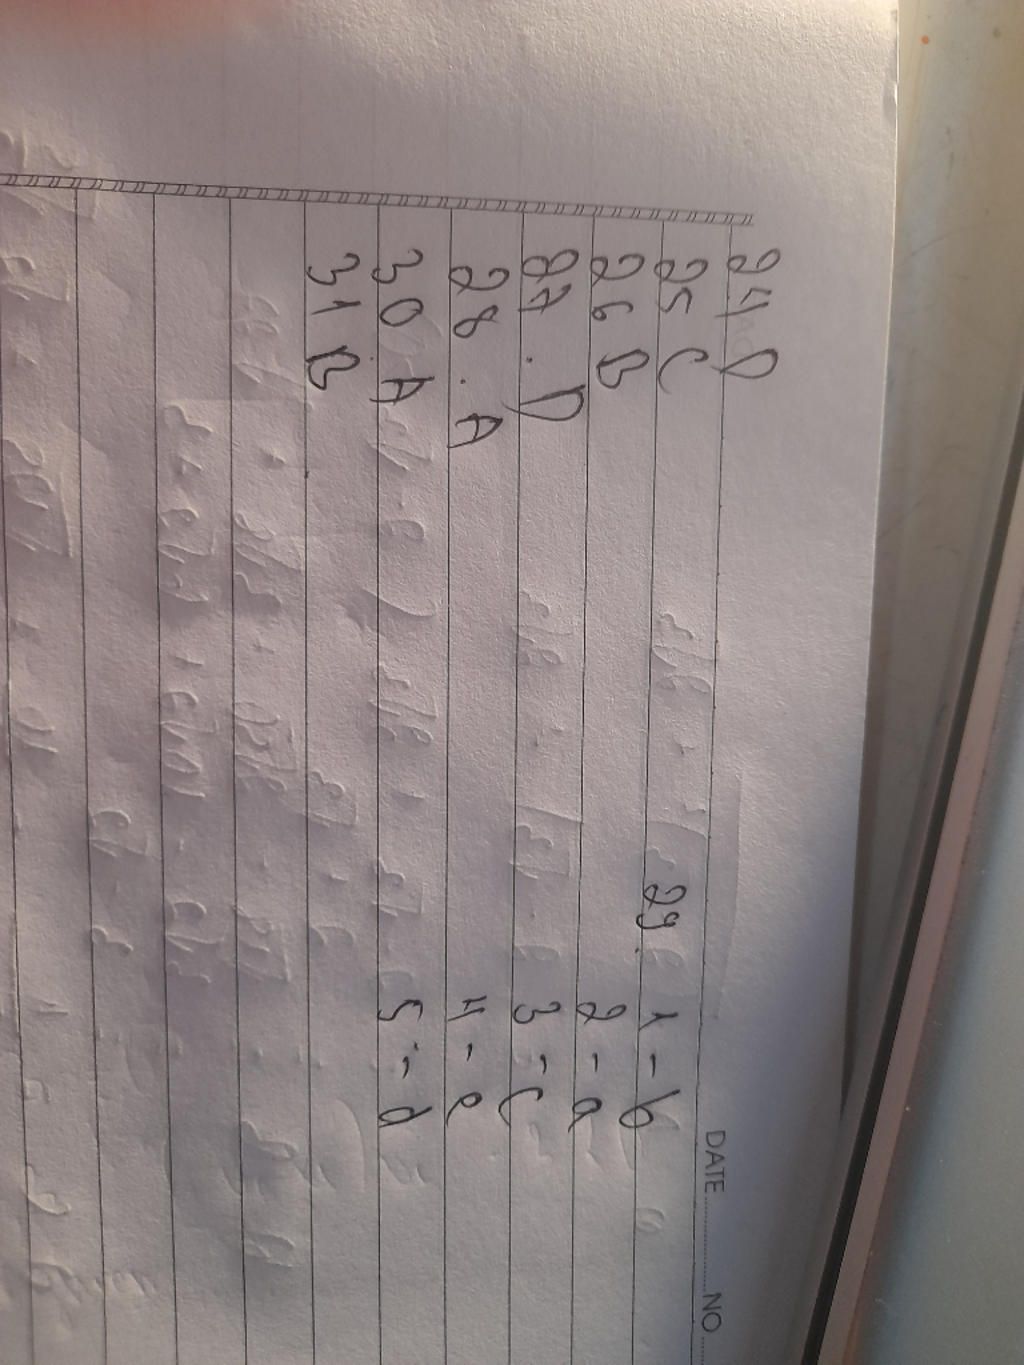 DATE NO
24 D
25 C
26 B
27. D
28. A
30 A
31 B
29. 1-b
2-a
3-c
4-e
5-d